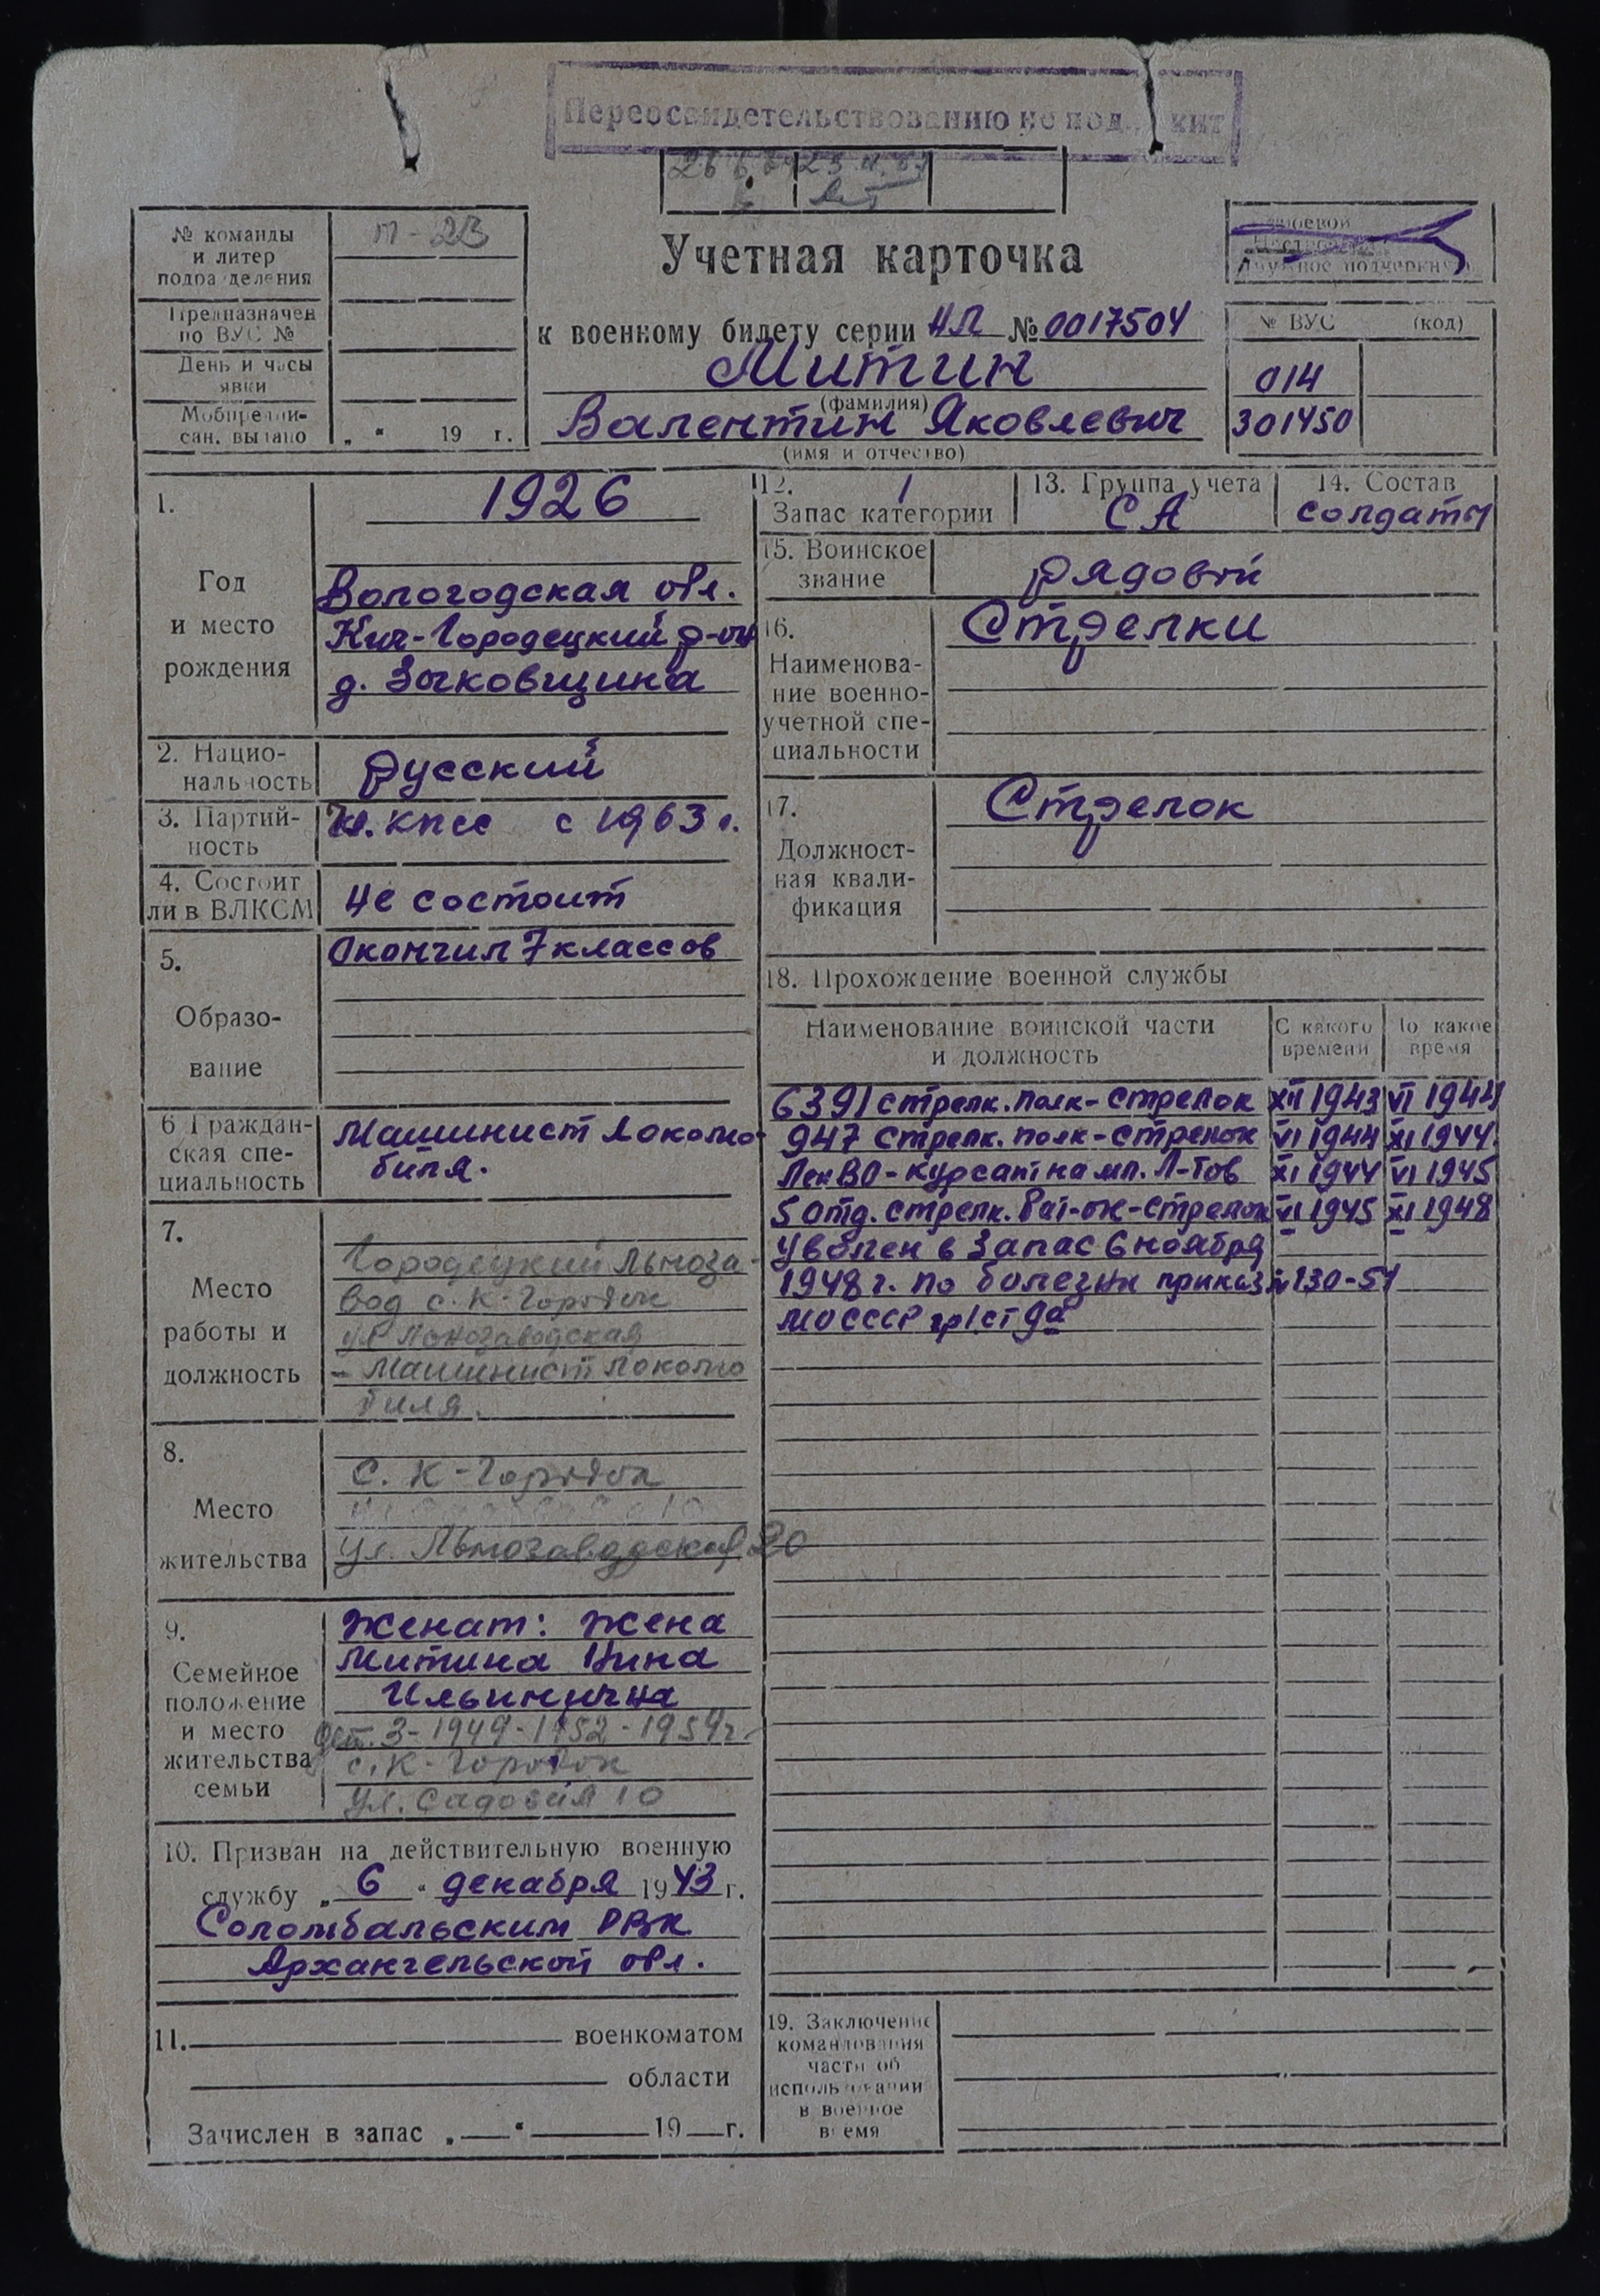 Переосвидетельствованию не под кит
№ команды
и литер
подразделения
П-23
Предназначен
по ВУС №
День и часы
явки
Мобпредпи-
сан. выдано
„ “ 19 г.
Учетная карточка
к военному билету серии НЛ № 0017504
Митин
(фамилия)
Валентин Яковлевич
(имя и отчество)
№ ВУС (код)
014
301450
1.
Год
и место
рождения
1926
Вологодская обл.
Кич-Городецкий р-он
д. Зыковщина
2. Нацио-
нальность
русский
3. Партий-
ность
Чл. КПСС с 1963 г.
4. Состоит
ли в ВЛКСМ
не состоит
5.
Образо-
вание
Окончил 7 классов
6 Граждан-
ская спе-
циальность
Машинист локомо-
биля.
7.
Место
работы и
должность
Городецкий льноза-
вод с. К-Городок
ул Льнозаводская
- Машинист локомо
биля.
8.
Место
жительства
С. К-Городок
ул. Льнозаводская 20
9.
Семейное
положение
и место
жительства
семьи
Женат: жена
Митина Нина
Ильинична
дет. 3-1949-1952-1954г.
с. К-Городок
ул. Садовая 10
10. Призван на действительную военную
службу „ 6 “ декабря 1943 г.
Соломбальским РВК
Архангельской обл.
11. военкоматом
области
Зачислен в запас „ “ 19 г.
12. 1
Запас категории
13. Группа учета
СА
14. Состав
солдаты
15. Воинское
звание
рядовой
16.
Наименова-
ние военно-
учетной спе-
циальности
Стрелки
17.
Должност-
ная квали-
фикация
Стрелок
18. Прохождение военной службы
Наименование воинской части
и должность
С какого
времени
По какое
время
6391 стрелк. полк-стрелок XII 1943 VI 1944
947 стрелк. полк-стрелок VI 1944 XI 1944
Лен ВО-курсант на мл. л-тов XI 1944 VI 1945
5 отд. стрелк. бат-он-стрелок VI 1945 XI 1948
Уволен в запас 6 ноября
1948 г. по болезни приказ № 130-51
МО СССР гр I ст 9а
19. Заключение
командования
части об
использовании
в военное
время